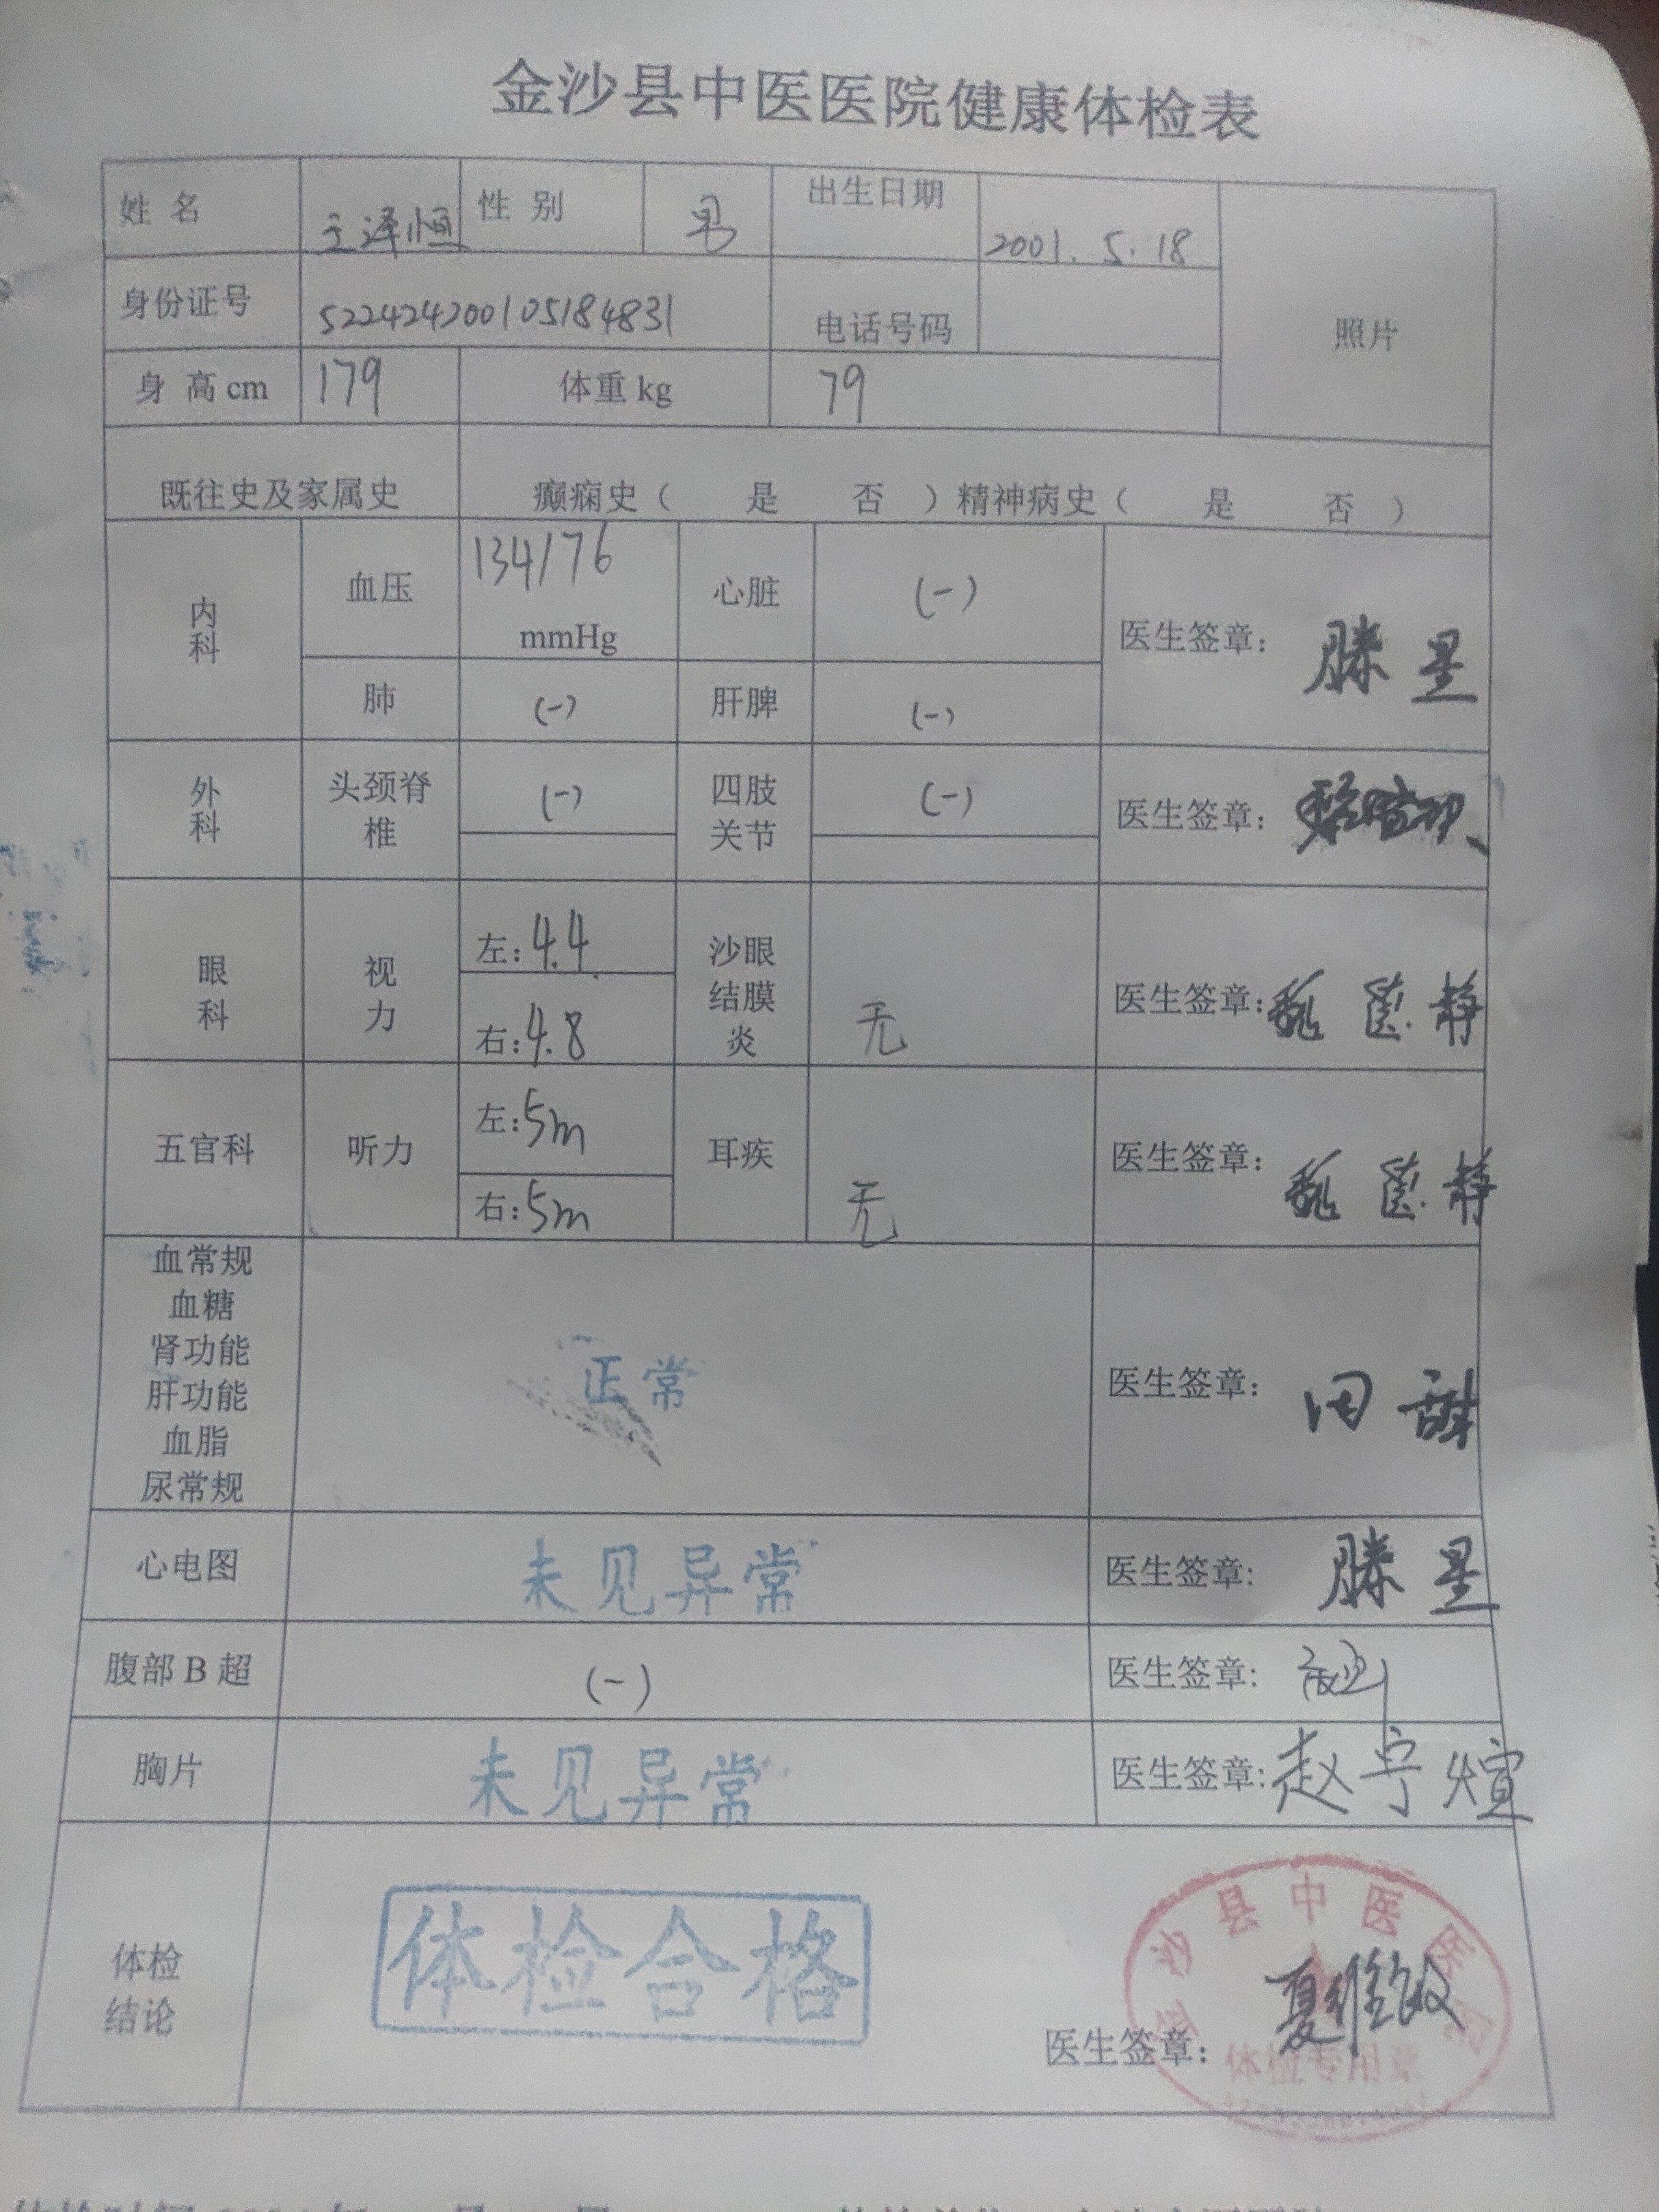 金沙县中医医院健康体检表
姓 名 王泽恒 性 别 男 出生日期 2001.5.18 照片
身份证号 522424200105184831 电话号码
身 高 cm 179 体重 kg 79
既往史及家属史 癫痫史（ 是 否 ）精神病史（ 是 否 ）
内科 血压 134/76 mmHg 心脏 (-) 医生签章： 滕星
肺 (-) 肝脾 (-)
外科 头颈脊椎 (-) 四肢关节 (-) 医生签章：
眼科 视力 左：4.4 沙眼结膜炎 无 医生签章：魏 静
右：4.8
五官科 听力 左：5m 耳疾 无 医生签章： 魏 静
右：5m
血常规
血糖
肾功能
肝功能
血脂
尿常规
正常 医生签章： 田甜
心电图 未见异常 医生签章： 滕星
腹部 B 超 (-) 医生签章：
胸片 未见异常 医生签章：赵宁煊
体检结论 体检合格 医生签章： 夏维敏
沙县中医医
体检专用章